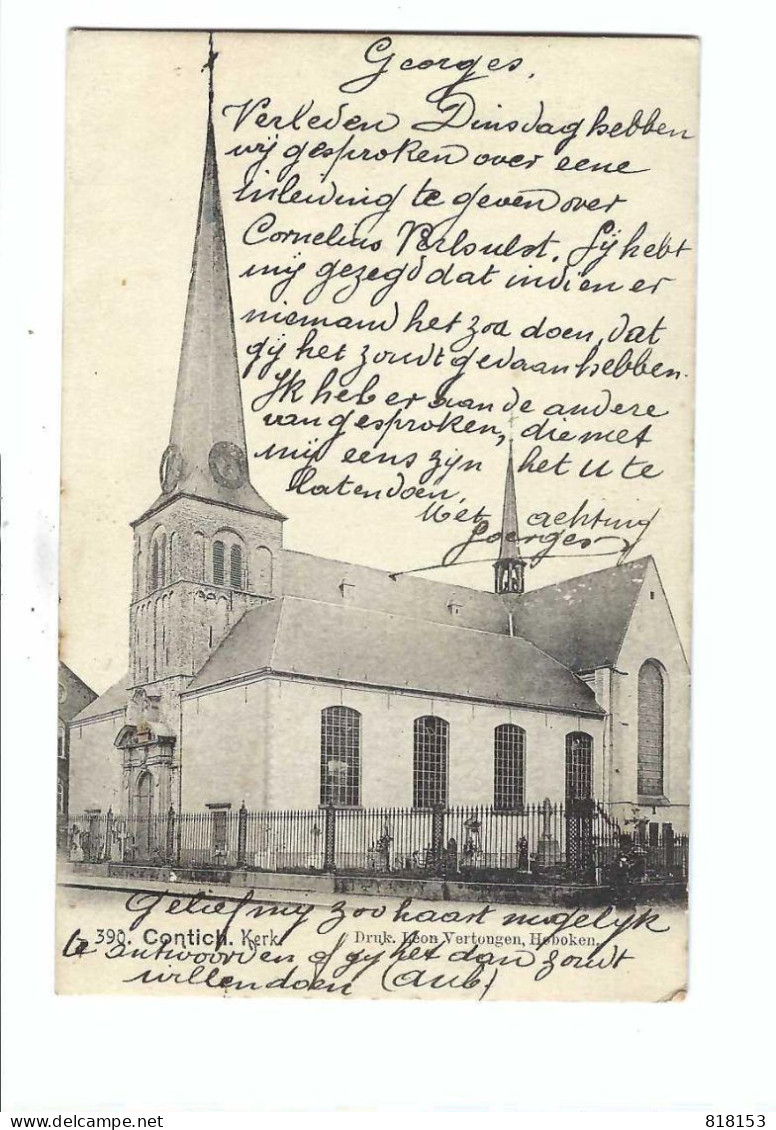 Georges,
Verleden Dinsdag hebben
wij gesproken over eene
inleiding te geven over
Cornelius Verhulst. Gij hebt
mij gezegd dat indien er
niemand het zou doen, dat
gij het zoudt gedaan hebben.
Ik heb er aan de andere
van gesproken, die met
mij eens zijn het U te
laten doen.
Met achting
Georges
Gelief mij zoo haast mogelijk
390. Contich. Kerk. Druk. Léon Vertongen, Hoboken.
te antwoorden of gij het dan zoudt
willen doen (aub)
818153